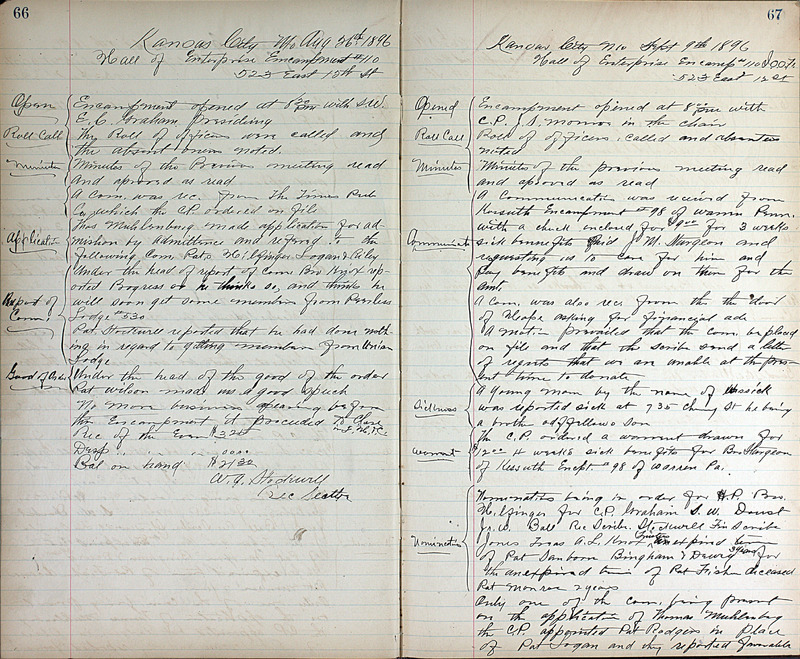 66
Kansas City Mo Aug 26th 1896
Hall of Enterprise Encampment #110
523 East 12th St
Open
Encampment opened at 8 with S.W.
E. C. Graham presiding
Roll Call
The Roll of officers were called and
the absent ones noted.
Minutes
Minutes of the Previous meeting read
and aproved as read
A com. was rec. from The Times Pub
Co which the C.P. ordered on file
Application
Thos Muhlenburg made application for ad-
mission by admittance and refered to the
following Com Pats Hilfinger Logan &
Report of Com
Under the head of report of Com Bro Knox rep-
orted Progress or he thinks so, and thinks he
will soon get some members from Peerless
Lodge #530
Pat. Stockwell reported that he had done noth-
ing in regard to getting members from Union
Lodge
Good of Order
Under the head of the good of the order
Pat Wilson made us a good speech
No more business apearing before
the Encampment it proceeded To Close
Rec of the Even $3
Disp
Bal on hand $
W. A. Stockwell
Rec Scribe
67
Kansas City Mo Sept 9th 1896
Hall of Enterprise Encamp #110 I.O.O.F.
523 East 12 St
Opened
Encampment opened at 8 with
C.P. J. S. Monroe in the chair
Roll Call
Roll of officers called and absentees
noted
Minutes
Minutes of the previous meeting read
and aproved as read
Communicat
A Communication was recived from
Kossuth Encampment #98 of Warren Penn.
with a check enclosed for $9 for 3 weeks
sick benefits paid J. M. Sturgeon and
requesting us to care for him and
pay benefits and draw on them for the
amt.
A com. was also rec. from the
of asking for financial ade
A motion prevailed that the com. be placed
on file and that the scribe send a letter
of regrets that we are unable at the pres-
ent time to donate
Sickness
A young man by the name of
was reported sick at 735 St he being
a brother oddfellows son
Warrant
The C.P. ordered a warrant drawn for
$12 4 weeks sick benefits for Bro Sturgeon
of Kossuth Encpt #98 of Warren Pa.
Nomination
Nominations being in order for H.P. Bro.
Hilfinger for C.P. Graham S. W. Doust
J. W. Ball Rec Scribe Stockwell Fin Scribe
Jones Treas A. L. Knox Trustees unexpired
of Pat Sanborn Bingham & 3 years for
the unexpired term of Pat Fisher deceased
Pat Monroe 2 years
Only one of the com. being present
on the application of Thomas Muhlenburg
the C.P. appointed Pat Rodgers in place
of Pat Logan and they reported favorable